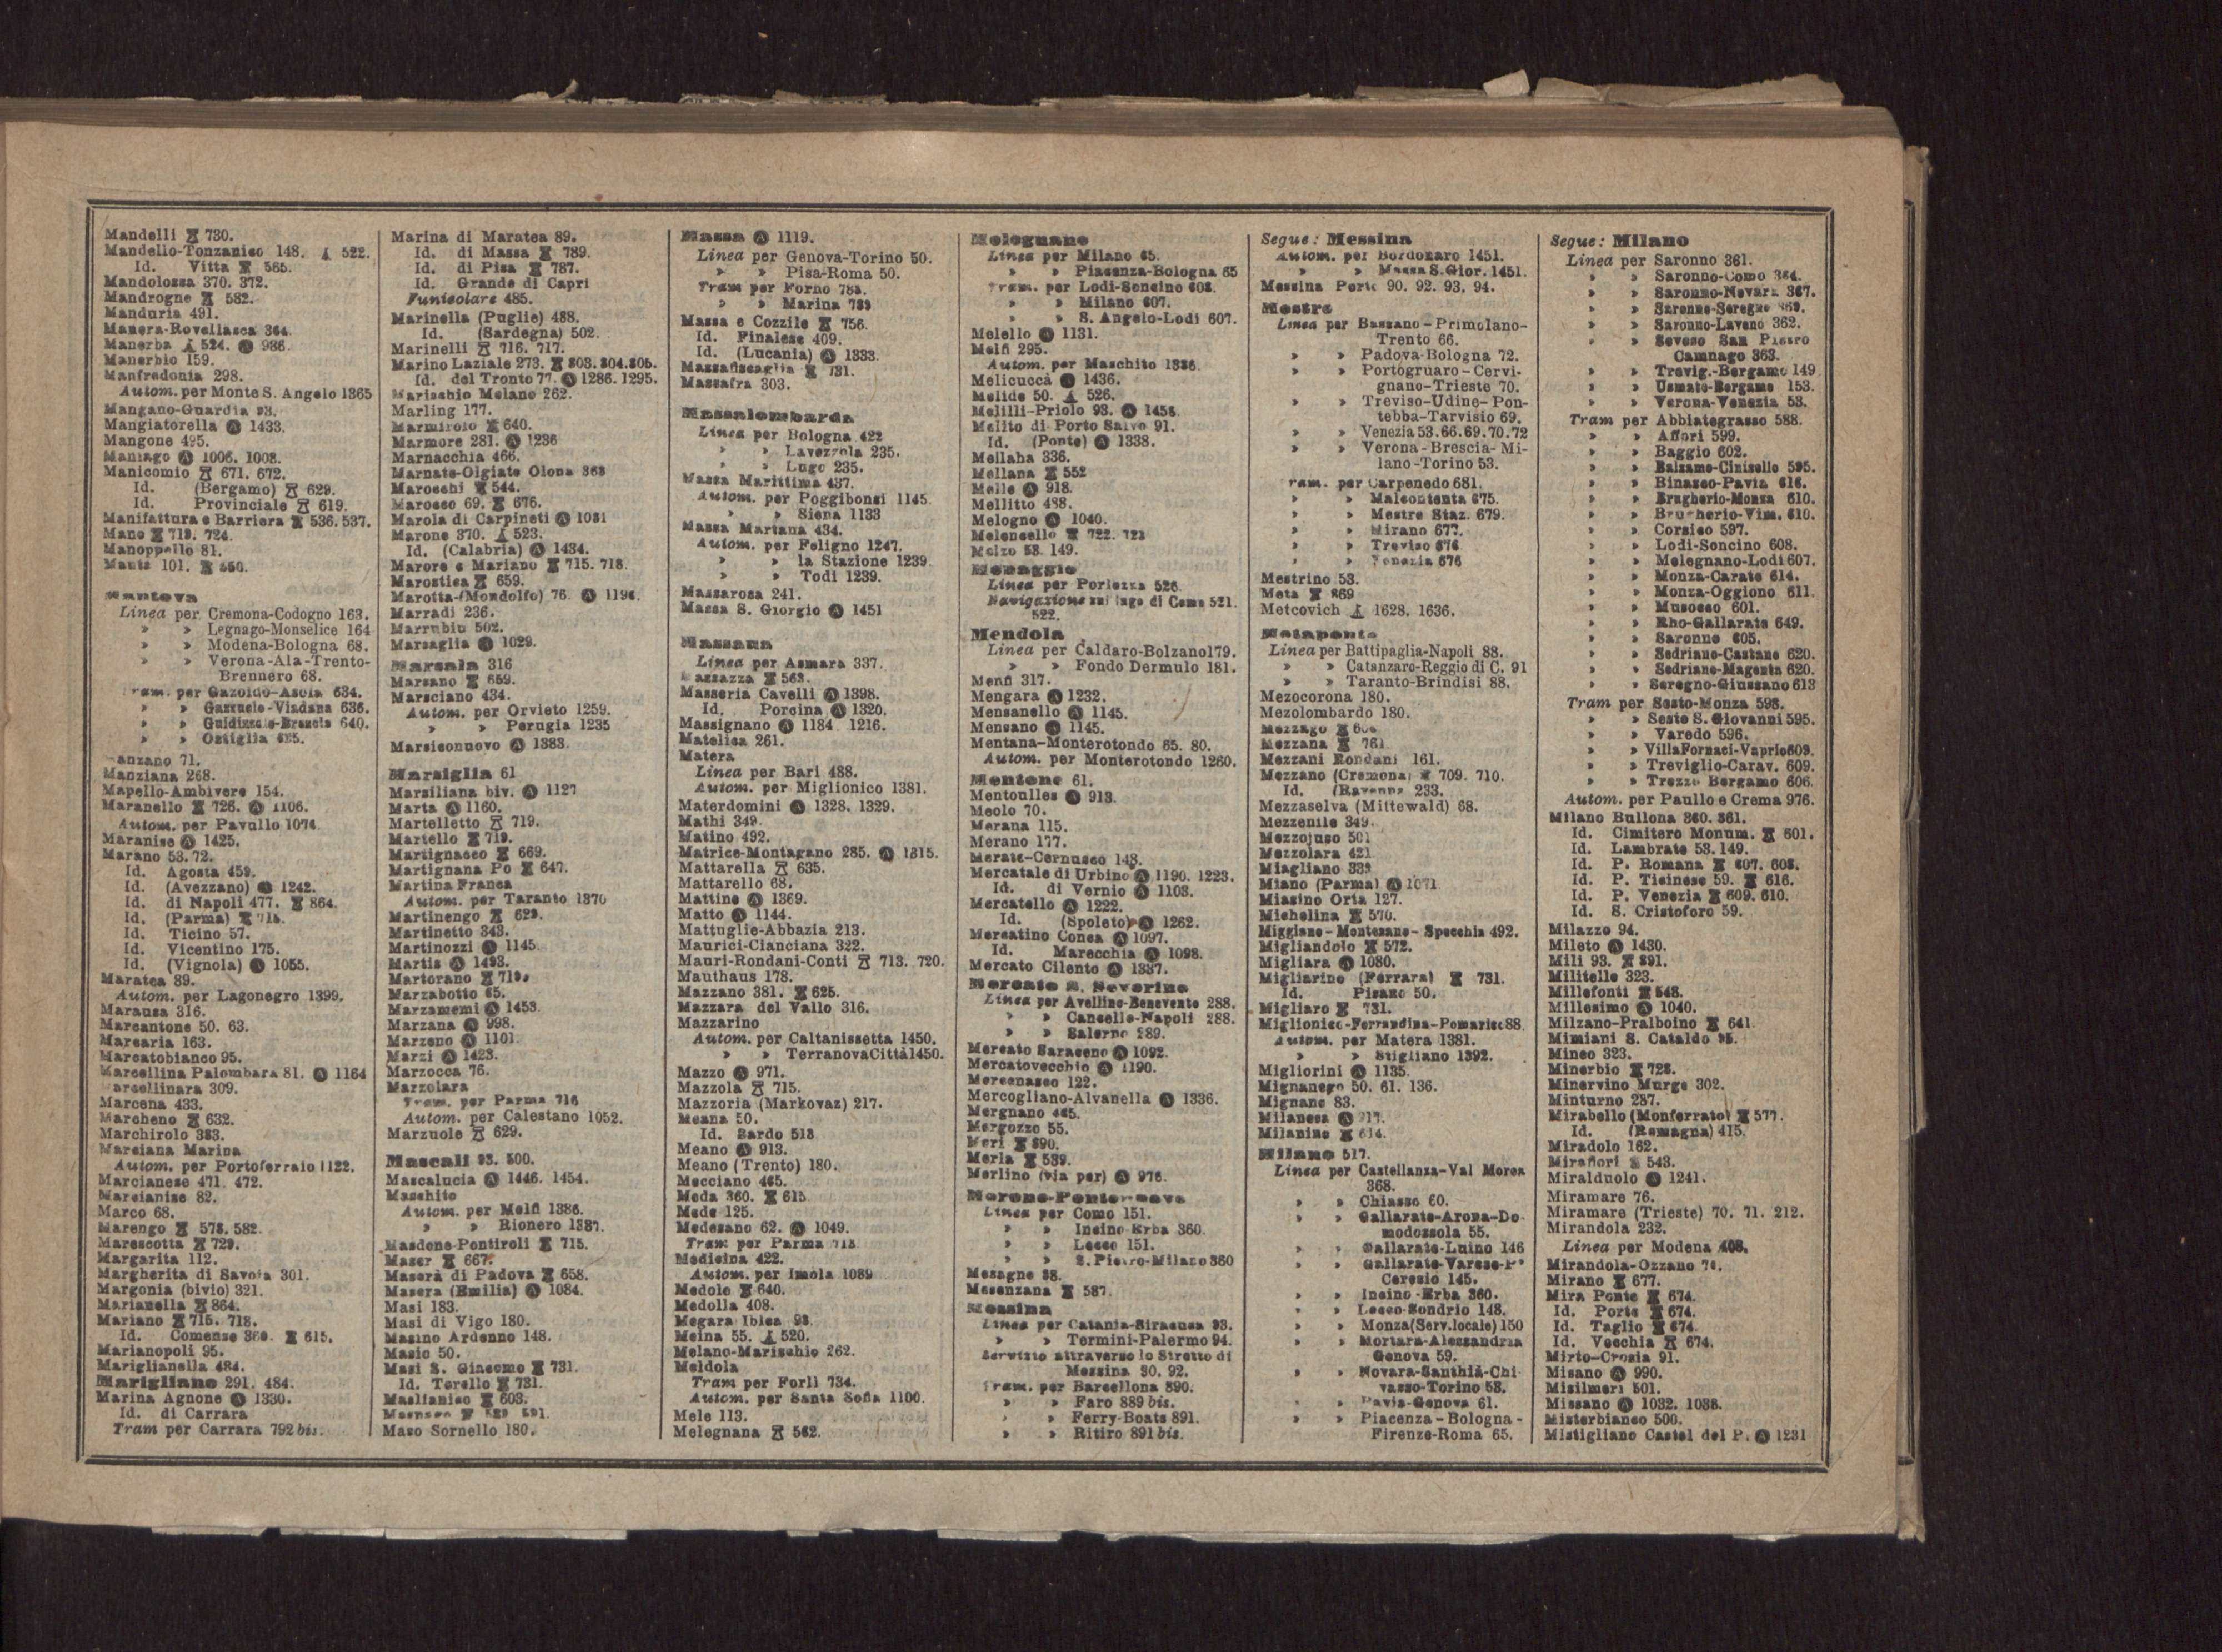 Mandelli 730.
Mandello-Tonzanico 148. 522.
Id. Vitta 565.
Mandolossa 370. 372.
Mandrogne 582.
Manduria 491.
Manera-Rovellasca 364.
Manerba 524. Ⓐ 986.
Manerbio 159.
Manfredonia 298.
Autom. per Monte S. Angelo 1365
Mangano-Guardia 93.
Mangiatorella Ⓐ 1433.
Mangone 495.
Maniago Ⓐ 1006. 1008.
Manicomio 671. 672.
Id. (Bergamo) 629.
Id. Provinciale 619.
Manifattura e Barriera 536. 537.
Mano 719. 724.
Manoppello 81.
Manta 101. 550.
Mantova
Linea per Cremona-Codogno 163.
» » Legnago-Monselice 164
» » Modena-Bologna 68.
» » Verona-Ala-Trento-
Brennero 68.
Tram. per Gazoldo-Asola 634.
» » Gazzuolo-Viadana 636.
» » Guidizzolo-Brescia 640.
» » Ostiglia 635.
anzano 71.
Manziana 268.
Mapello-Ambivere 154.
Maranello 726. Ⓐ 1106.
Autom. per Pavullo 1074
Maranise Ⓐ 1425.
Marano 53. 72.
Id. Agosta 459.
Id. (Avezzano) Ⓐ 1242.
Id. di Napoli 477. 864.
Id. (Parma)
Id. Ticino 57.
Id. Vicentino 175.
Id. (Vignola) Ⓐ 1055.
Maratea 89.
Autom. per Lagonegro 1399.
Marausa 316.
Marcantone 50. 63.
Marcaria 163.
Marcatobianco 95.
Marcellina Palombara 81. Ⓐ 1164
arcellinara 309.
Marcena 433.
Marcheno 632.
Marchirolo 383.
Marciana Marina
Autom. per Portoferraio 1122.
Marcianese 471. 472.
Marcianise 82.
Marco 68.
Marengo 578. 582.
Marescotta 729.
Margarita 112.
Margherita di Savoia 301.
Margonia (bivio) 321.
Marianella 864.
Mariano 715. 718.
Id. Comense 360. 615.
Marianopoli 95.
Mariglianella 484.
Marigliano 291. 484.
Marina Agnone Ⓐ 1330.
Id. di Carrara
Tram per Carrara 792 bis.
Marina di Maratea 89.
Id. di Massa 789.
Id. di Pisa 787.
Id. Grande di Capri
Funicolare 485.
Marinella (Puglie) 488.
Id. (Sardegna) 502.
Marinelli 716. 717.
Marino Laziale 273. 803. 804. 805.
Id. del Tronto 77. Ⓐ 1286. 1295.
Marischio Melano 262.
Marling 177.
Marmirolo 640.
Marmore 281. Ⓐ 1236
Marnacchia 466.
Marnate-Olgiate Olona 368
Marocchi 544.
Marocco 69. 676.
Marola di Carpineti Ⓐ 1081
Marone 370. 523.
Id. (Calabria) Ⓐ 1434.
Marore e Mariano 715. 718.
Marostica 659.
Marotta-(Mondolfo) 76. Ⓐ 1196.
Marradi 236.
Marrubiu 502.
Marsaglia Ⓐ 1029.
Marsala 316
Marsano 659.
Marsciano 434.
Autom. per Orvieto 1259.
» » Perugia 1235
Marsiconnovo Ⓐ 1383.
Marsiglia 61
Marsiliana biv. Ⓐ 1127
Marta Ⓐ 1160.
Martelletto 719.
Martello 719.
Martignacco 669.
Martignana Po 647.
Martina Franca
Autom. per Taranto 1370
Martinengo 629.
Martinetto 343.
Martinozzi Ⓐ 1145.
Martis Ⓐ 1493.
Martorano 719.
Marzabotto 65.
Marzamemi Ⓐ 1453.
Marzana Ⓐ 998.
Marzeno Ⓐ 1101.
Marzi Ⓐ 1423.
Marzocca 76.
Marzolara
Tram. per Parma 716
Autom. per Calestano 1052.
Marzuole 629.
Mascali 93. 500.
Mascalucia Ⓐ 1446. 1454.
Maschito
Autom. per Melfi 1386.
» » Rionero 1387.
Masdone-Pontiroli 715.
Maser 667.
Maserà di Padova 658.
Masera (Emilia) Ⓐ 1084.
Masi 183.
Masi di Vigo 180.
Masino Ardenno 148.
Masio 50.
Masi S. Giacomo 731.
Id. Torello 731.
Maslianico 603.
Maso Sornello 180.
Massa Ⓐ 1119.
Linea per Genova-Torino 50.
» » Pisa-Roma 50.
Tram per Forno 789.
» » Marina 789
Massa e Cozzile 756.
Id. Finalese 409.
Id. (Lucania) Ⓐ 1333.
Massafiscaglia 731.
Massafra 303.
Massalombarda
Linea per Bologna 422
» » Lavezzola 235.
» » Lugo 235.
Massa Marittima 437.
Autom. per Poggibonsi 1145.
» » Siena 1133
Massa Martana 434.
Autom. per Foligno 1247.
» » la Stazione 1239
» » Todi 1239.
Massarosa 241.
Massa S. Giorgio Ⓐ 1451
Massaua
Linea per Asmara 337.
assazza 563.
Masseria Cavelli Ⓐ 1398.
Id. Porcina Ⓐ 1320.
Massignano Ⓐ 1184 1216.
Matelica 261.
Matera
Linea per Bari 488.
Autom. per Miglionico 1381.
Materdomini Ⓐ 1328. 1329.
Mathi 349.
Matino 492.
Matrice-Montagano 285. Ⓐ 1315.
Mattarella 635.
Mattarello 68.
Mattine Ⓐ 1369.
Matto Ⓐ 1144.
Mattuglie-Abbazia 213.
Maurici-Cianciana 322.
Mauri-Rondani-Conti 713. 720.
Mauthaus 178.
Mazzano 381. 625.
Mazzara del Vallo 316.
Mazzarino
Autom. per Caltanissetta 1450.
» » Terranova Città 1450.
Mazzo Ⓐ 971.
Mazzola 715.
Mazzoria (Markovaz) 217.
Meana 50.
Id. Sardo 513
Meano Ⓐ 913.
Meano (Trento) 180.
Mecciano 465.
Meda 360. 615
Mede 125.
Medesano 62. Ⓐ 1049.
Tram per Parma 718
Medicina 422.
Autom. per Imola 1089
Medole 640.
Medolla 408.
Megara Iblea 93.
Meina 55. 520.
Melano-Marischio 262.
Meldola
Tram per Forlì 734.
Autom. per Santa Sofia 1100.
Mele 113.
Melegnana 562.
Melegnano
Linea per Milano 65.
» » Piacenza-Bologna 65
Tram. per Lodi-Soncino 608.
» » Milano 607.
» » S. Angelo-Lodi 607.
Melello Ⓐ 1131.
Melfi 295.
Autom. per Maschito 1386.
Melicuccà Ⓐ 1436.
Melide 50. 526.
Melilli-Priolo 93. Ⓐ 1456.
Melito di Porto Salvo 91.
Id. (Ponte) Ⓐ 1338.
Mellaha 336.
Mellana 552
Melle Ⓐ 918.
Mellitto 488.
Melogno Ⓐ 1040.
Meloncello 722. 723
Melzo 53. 149.
Menaggio
Linea per Porlezza 526.
Navigazione sul lago di Como 521.
522.
Mendola
Linea per Caldaro-Bolzano 179.
» » Fondo Dermulo 181.
Menfi 317.
Mengara Ⓐ 1232.
Mensanello Ⓐ 1145.
Mensano Ⓐ 1145.
Mentana-Monterotondo 65. 80.
Autom. per Monterotondo 1260.
Mentone 61.
Mentoulles Ⓐ 913.
Meolo 70.
Merana 115.
Merano 177.
Merate-Cernusco 148.
Mercatale di Urbino Ⓐ 1190. 1223.
Id. di Vernio Ⓐ 1103.
Mercatello Ⓐ 1222.
Id. (Spoleto) Ⓐ 1262.
Mercatino Conca Ⓐ 1097.
Id. Marecchia Ⓐ 1098.
Mercato Cilento Ⓐ 1337.
Mercato S. Severino
Linea per Avellino-Benevento 288.
» » Cancello-Napoli 288.
» » Salerno 289.
Mercato Saraceno Ⓐ 1092.
Mercatovecchio Ⓐ 1190.
Mercenasco 122.
Mercogliano-Alvanella Ⓐ 1336.
Mergnano 465.
Mergozzo 55.
Meri 890.
Merla 539.
Merlino (via per) Ⓐ 976.
Merone-Pontenuovo
Linea per Como 151.
» » Incino Erba 360.
» » Lecco 151.
» » S. Pietro-Milano 360
Mesagne 88.
Mesenzana 587.
Messina
Linea per Catania-Siracusa 93.
» » Termini-Palermo 94.
Servizio attraverso lo Stretto di
Messina 90. 92.
Tram. per Barcellona 890.
» » Faro 889 bis.
» » Ferry-Boats 891.
» » Ritiro 891 bis.
Segue: Messina
Autom. per Bordonaro 1451.
» » Massa S. Gior. 1451.
Messina Porto 90. 92. 93. 94.
Mestre
Linea per Bassano-Primolano-
Trento 66.
» » Padova-Bologna 72.
» » Portogruaro-Cervi-
gnano-Trieste 70.
» » Treviso-Udine-Pon-
tebba-Tarvisio 69.
» » Venezia 53. 66. 69. 70. 72
» » Verona-Brescia-Mi-
lano-Torino 53.
ram. per Carpenedo 681.
» » Malcontenta 675.
» » Mestre Staz. 679.
» » Mirano 677.
» » Treviso 676
» » Venezia 676
Mestrino 53.
Meta 869
Metcovich 1628. 1636.
Metaponto
Linea per Battipaglia-Napoli 88.
» » Catanzaro-Reggio di C. 91
» » Taranto-Brindisi 88.
Mezocorona 180.
Mezolombardo 180.
Mezzago
Mezzana 761
Mezzani Rondani 161.
Mezzano (Cremona) 709. 710.
Id. (Ravenna 233.
Mezzaselva (Mittewald) 68.
Mezzenile 349.
Mezzojuso 501
Mezzolara 421
Miagliano 339
Miano (Parma) Ⓐ 1071
Miasino Orta 127.
Michelina 570.
Miggiano-Montesano-Specchia 492.
Migliandolo 572.
Migliara Ⓐ 1080.
Migliarino (Ferrara) 731.
Id. Pisano 50.
Migliaro 731.
Miglionico-Ferrandina-Pomarico 88.
Autom. per Matera 1381.
» » Stigliano 1392.
Migliorini Ⓐ 1135.
Mignanego 50. 61. 136.
Mignano 83.
Milanesa Ⓐ 917.
Milanino 614.
Milano 517.
Linea per Castellanza-Val Morea
368.
» » Chiasso 60.
» » Gallarate-Arona-Do-
modossola 55.
» » Gallarate-Luino 146
» » Gallarate-Varese-Pº
Ceresio 145.
» » Incino-Erba 360.
» » Lecco-Sondrio 148.
» » Monza (Serv. locale) 150
» » Mortara-Alessandria
Genova 59.
» » Novara-Santhià-Chi-
vasso-Torino 53.
» » Pavia-Genova 61.
» » Piacenza-Bologna-
Firenze-Roma 65.
Segue: Milano
Linea per Saronno 361.
» » Saronno-Como 364.
» » Saronno-Novara 367.
» » Saronno-Seregno 369.
» » Saronno-Laveno 362.
» » Seveso San Pietro
Camnago 363.
» » Trevig.-Bergamo 149
» » Usmate-Bergamo 153.
» » Verona-Venezia 53.
Tram per Abbiategrasso 588.
» » Affori 599.
» » Baggio 602.
» » Balsamo-Cinisello 595.
» » Binasco-Pavia 616.
» » Brugherio-Monza 610.
» » Brugherio-Vim. 610.
» » Corsico 597.
» » Lodi-Soncino 608.
» » Melegnano-Lodi 607.
» » Monza-Carate 614.
» » Monza-Oggiono 611.
» » Musocco 601.
» » Rho-Gallarate 649.
» » Saronno 605.
» » Sedriano-Castano 620.
» » Sedriano-Magenta 620.
» » Seregno-Giussano 613
Tram per Sesto-Monza 598.
» » Sesto S. Giovanni 595.
» » Varedo 596.
» » Villa Fornaci-Vaprio 609.
» » Treviglio-Carav. 609.
» » Trezzo Bergamo 606.
Autom. per Paullo e Crema 976.
Milano Bullona 360. 361.
Id. Cimitero Monum. 601.
Id. Lambrate 53. 149.
Id. P. Romana 607. 608.
Id. P. Ticinese 59. 616.
Id. P. Venezia 609. 610.
Id. S. Cristoforo 59.
Milazzo 94.
Mileto Ⓐ 1430.
Mili 93. 891.
Militello 323.
Millefonti 548.
Millesimo Ⓐ 1040.
Milzano-Pralboino 641.
Mimiani S. Cataldo 95.
Mineo 323.
Minerbio 728.
Minervino Murge 302.
Minturno 287.
Mirabello (Monferrato) 577.
Id. (Romagna) 415.
Miradolo 162.
Mirafiori 543.
Miralduolo Ⓐ 1241.
Miramare 76.
Miramare (Trieste) 70. 71. 212.
Mirandola 232.
Linea per Modena 408.
Mirandola-Ozzano 74.
Mirano 677.
Mira Ponte 674.
Id. Porte 674.
Id. Taglio 674.
Id. Vecchia 674.
Mirto-Crosia 91.
Misano Ⓐ 990.
Misilmeri 501.
Missano Ⓐ 1032. 1038.
Misterbianco 500.
Mistigliano Castel del P. Ⓐ 1231